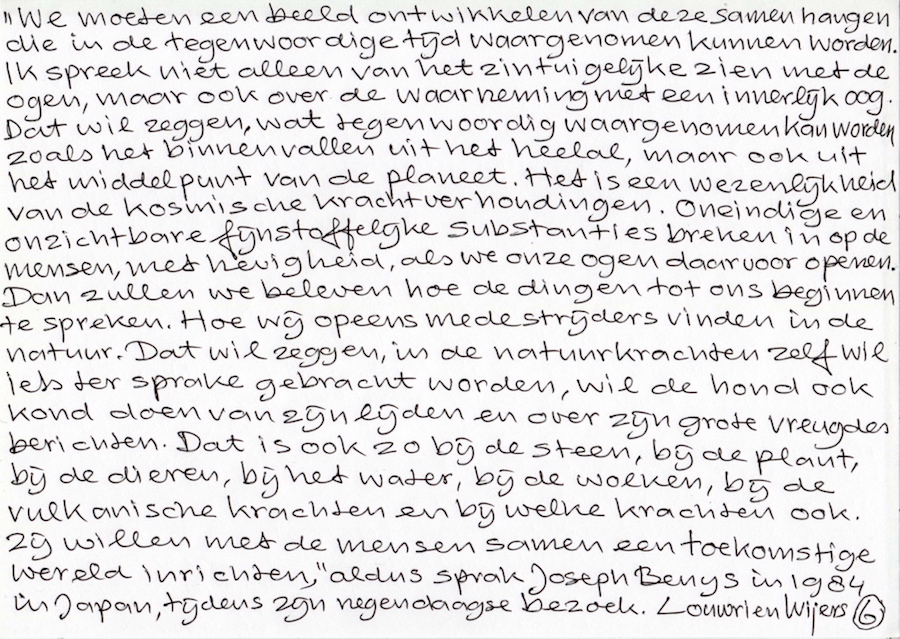 "We moeten een beeld ontwikkelen van deze samenhangen
die in de tegenwoordige tijd waargenomen kunnen worden.
Ik spreek niet alleen van het zintuigelijke zien met de
ogen, maar ook over de waarneming met een innerlijk oog.
Dat wil zeggen, wat tegenwoordig waargenomen kan worden
zoals het binnenvallen uit het heelal, maar ook uit
het middelpunt van de planeet. Het is een wezenlijkheid
van de kosmische krachtverhoudingen. Oneindige en
onzichtbare fijnstoffelijke substanties breken in op de
mensen, met hevigheid, als we onze ogen daarvoor openen.
Dan zullen we beleven hoe de dingen tot ons beginnen
te spreken. Hoe wij opeens medestrijders vinden in de
natuur. Dat wil zeggen, in de natuurkrachten zelf wil
iets ter sprake gebracht worden, wil de hond ook
kond doen van zijn lijden en over zijn grote vreugdes
berichten. Dat is ook zo bij de steen, bij de plant,
bij de dieren, bij het water, bij de wolken, bij de
vulkanische krachten en bij welke krachten ook.
Zij willen met de mensen samen een toekomstige
wereld inrichten," aldus sprak Joseph Beuys in 1984
in Japan, tijdens zijn negendaagse bezoek. Louwrien Wijers 6